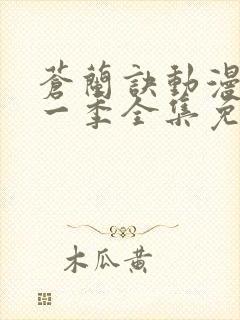 蒼蘭訣動漫
一季全集免
木瓜黄